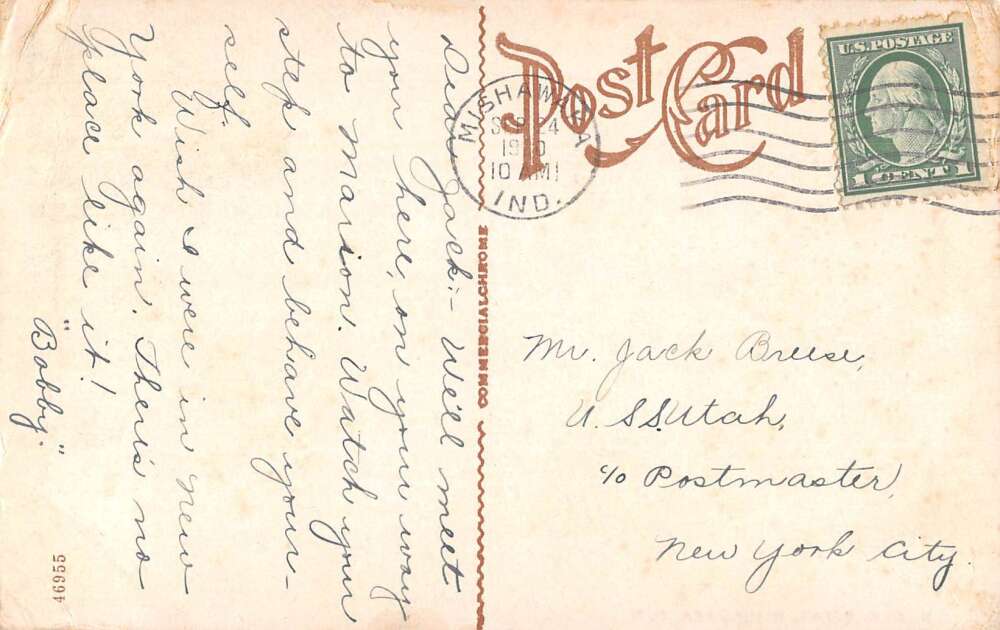 Post Card
U.S. POSTAGE
1 CENT 1
MISHAWAKA
SEP 24
10 AM
IND.
COMMERCIALCHROME
Dear Jack:- We'll meet
you here, on your way
to Marion. Watch your
step and behave your-
self.
Wish I were in New
York again. There's no
place like it!
"Bobby."
46955
Mr. Jack Breese,
U.S.S. Utah,
c/o Postmaster,
New York City.